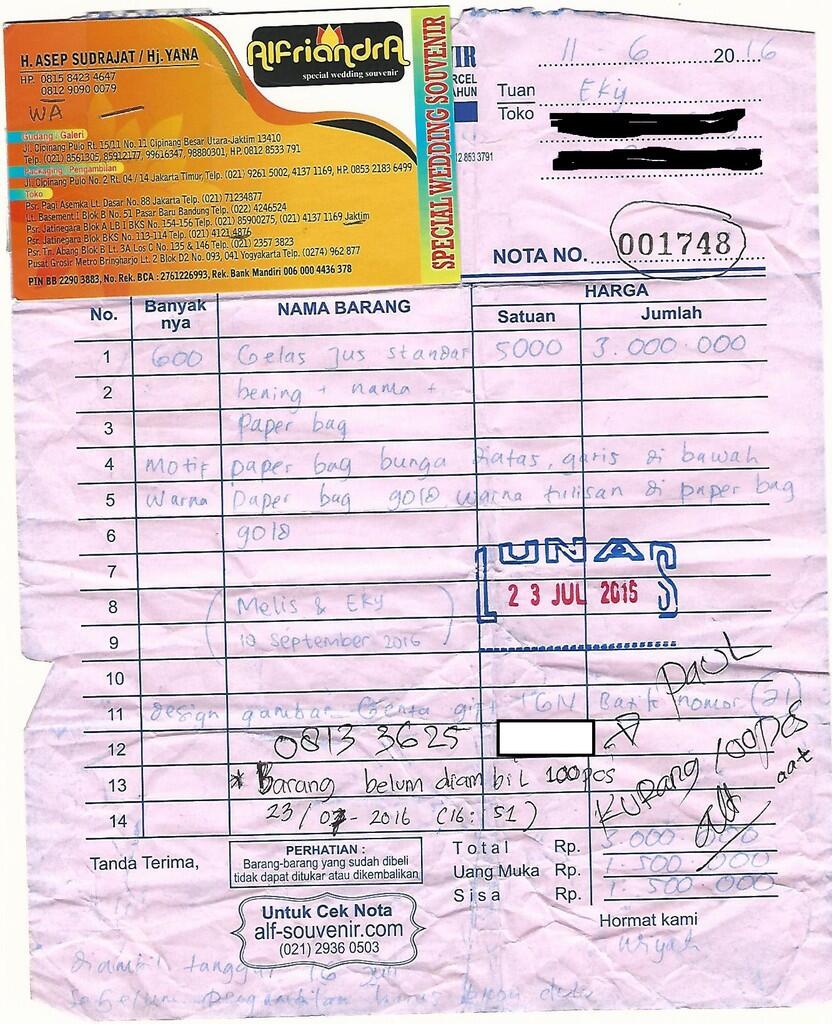 H. ASEP SUDRAJAT / Hj. YANA
HP. 0815 8423 4647
0812 9090 0079
WA
AlFriandrA
special wedding souvenir
SPECIAL WEDDING SOUVENIR
Gudang / Galeri
Jl. Cipinang Pulo Rt. 15/11 No. 11 Cipinang Besar Utara-Jaktim 13410
Telp. (021) 8561305, 85912177, 99616347, 98880301, HP. 0812 8533 791
Packaging / Pengambilan
Jl. Cipinang Pulo No. 2 Rt. 04 / 14 Jakarta Timur, Telp. (021) 9261 5002, 4137 1169, HP. 0853 2183 6499
Toko
Psr. Pagi Asemka Lt. Dasar No. 88 Jakarta Telp. (021) 71234877
Lt. Basement I Blok B No. 51 Pasar Baru Bandung Telp. (022) 4246524
Psr. Jatinegara Blok A LB I BKS No. 154-156 Telp. (021) 85900275, (021) 4137 1169 Jaktim
Psr. Jatinegara Blok BKS No. 113-114 Telp. (021) 4121 4876
Psr. Tn. Abang Blok B Lt. 3A Los C No. 135 & 146 Telp. (021) 2357 3823
Pusat Grosir Metro Bringharjo Lt. 2 Blok D2 No. 093, 041 Yogyakarta Telp. (0274) 962 877
PIN BB 2290 3883, No. Rek. BCA : 2761226993, Rek. Bank Mandiri 006 000 4436 378
IR
RCEL
AHUN
2 853 3791
11 - 6 2016
Tuan Eky
Toko
NOTA NO. 001748
No. Banyak nya NAMA BARANG HARGA
Satuan Jumlah
1 600 Gelas Jus standar 5000 3.000.000
2 bening + nama +
3 Paper bag
4 Motif paper bag bunga diatas, garis di bawah
5 Warna paper bag gold warna tulisan di paper bag
6 gold
7 LUNAS
8 (Melis & Eky 23 JUL 2016
9 10 September 2016)
10
PAUL
11 design gambar gift TGN Batik nomor (21)
12 0813 3625
Kurang 100pcs
13 * Barang belum diambil 100pcs
14 23/07-2016 (16:51)
Tanda Terima,
PERHATIAN :
Barang-barang yang sudah dibeli
tidak dapat ditukar atau dikembalikan
Total Rp. 3.000.000
Uang Muka Rp. 1.500.000
Sisa Rp. 1.500.000
Untuk Cek Nota
alf-souvenir.com
(021) 2936 0503
Hormat kami
diambil tanggal 16
sebelum pengambilan harus